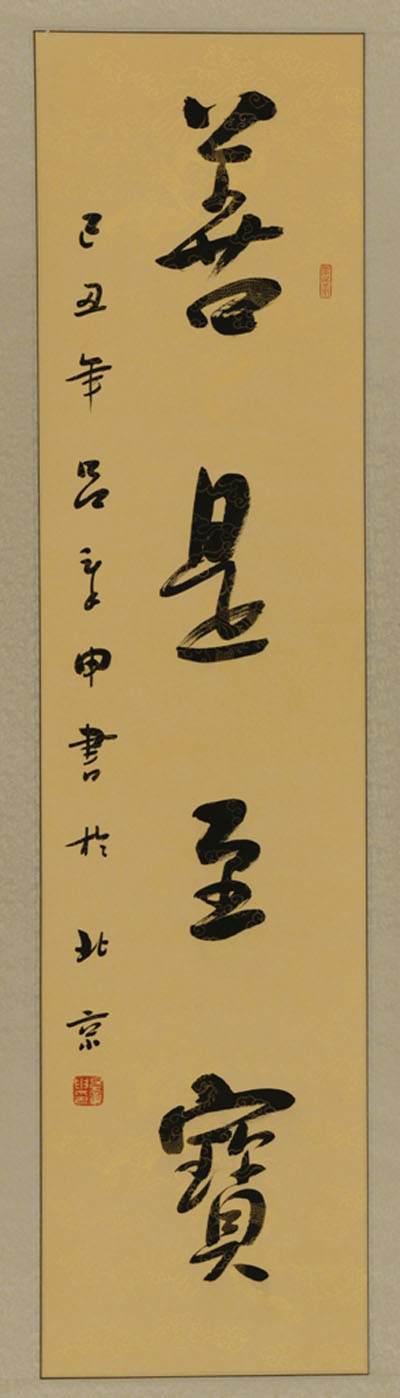 善是至寶
己丑年呂章申書於北京